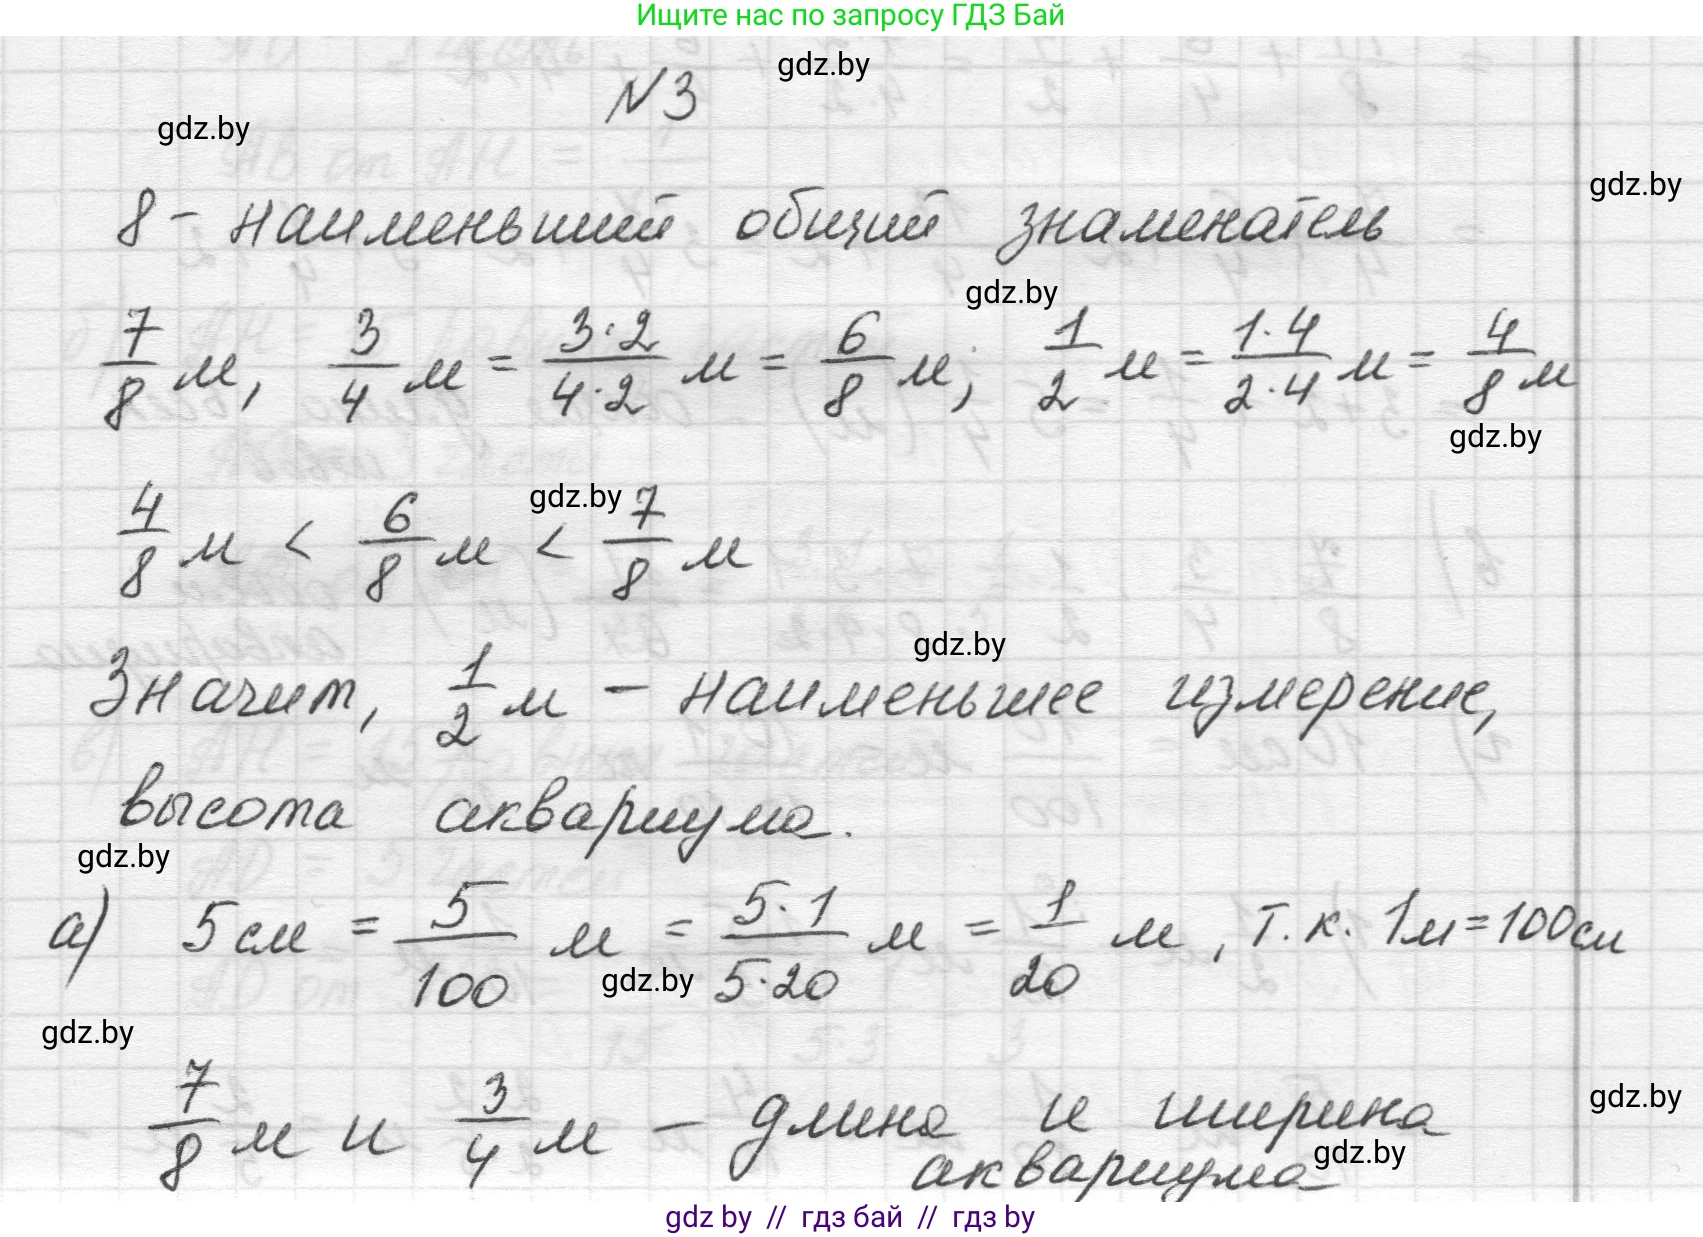 Ищите нас по запросу ГДЗ Бай
gdz.by
N3
gdz.by
gdz.by
8 - наименьший общий знаменатель
gdz.by
7/8 м, 3/4 м = 3·2/4·2 м = 6/8 м; 1/2 м = 1·4/2·4 м = 4/8 м
gdz.by
gdz.by
4/8 м < 6/8 м < 7/8 м
gdz.by
Значит, 1/2 м - наименьшее измерение,
высота аквариума.
gdz.by
а) 5 см = 5/100 м = 5·1/5·20 м = 1/20 м, т.к. 1м = 100см
gdz.by
gdz.by
7/8 м и 3/4 м - длина и ширина
gdz.by
gdz.by
аквариума
gdz by // гдз бай // гдз by